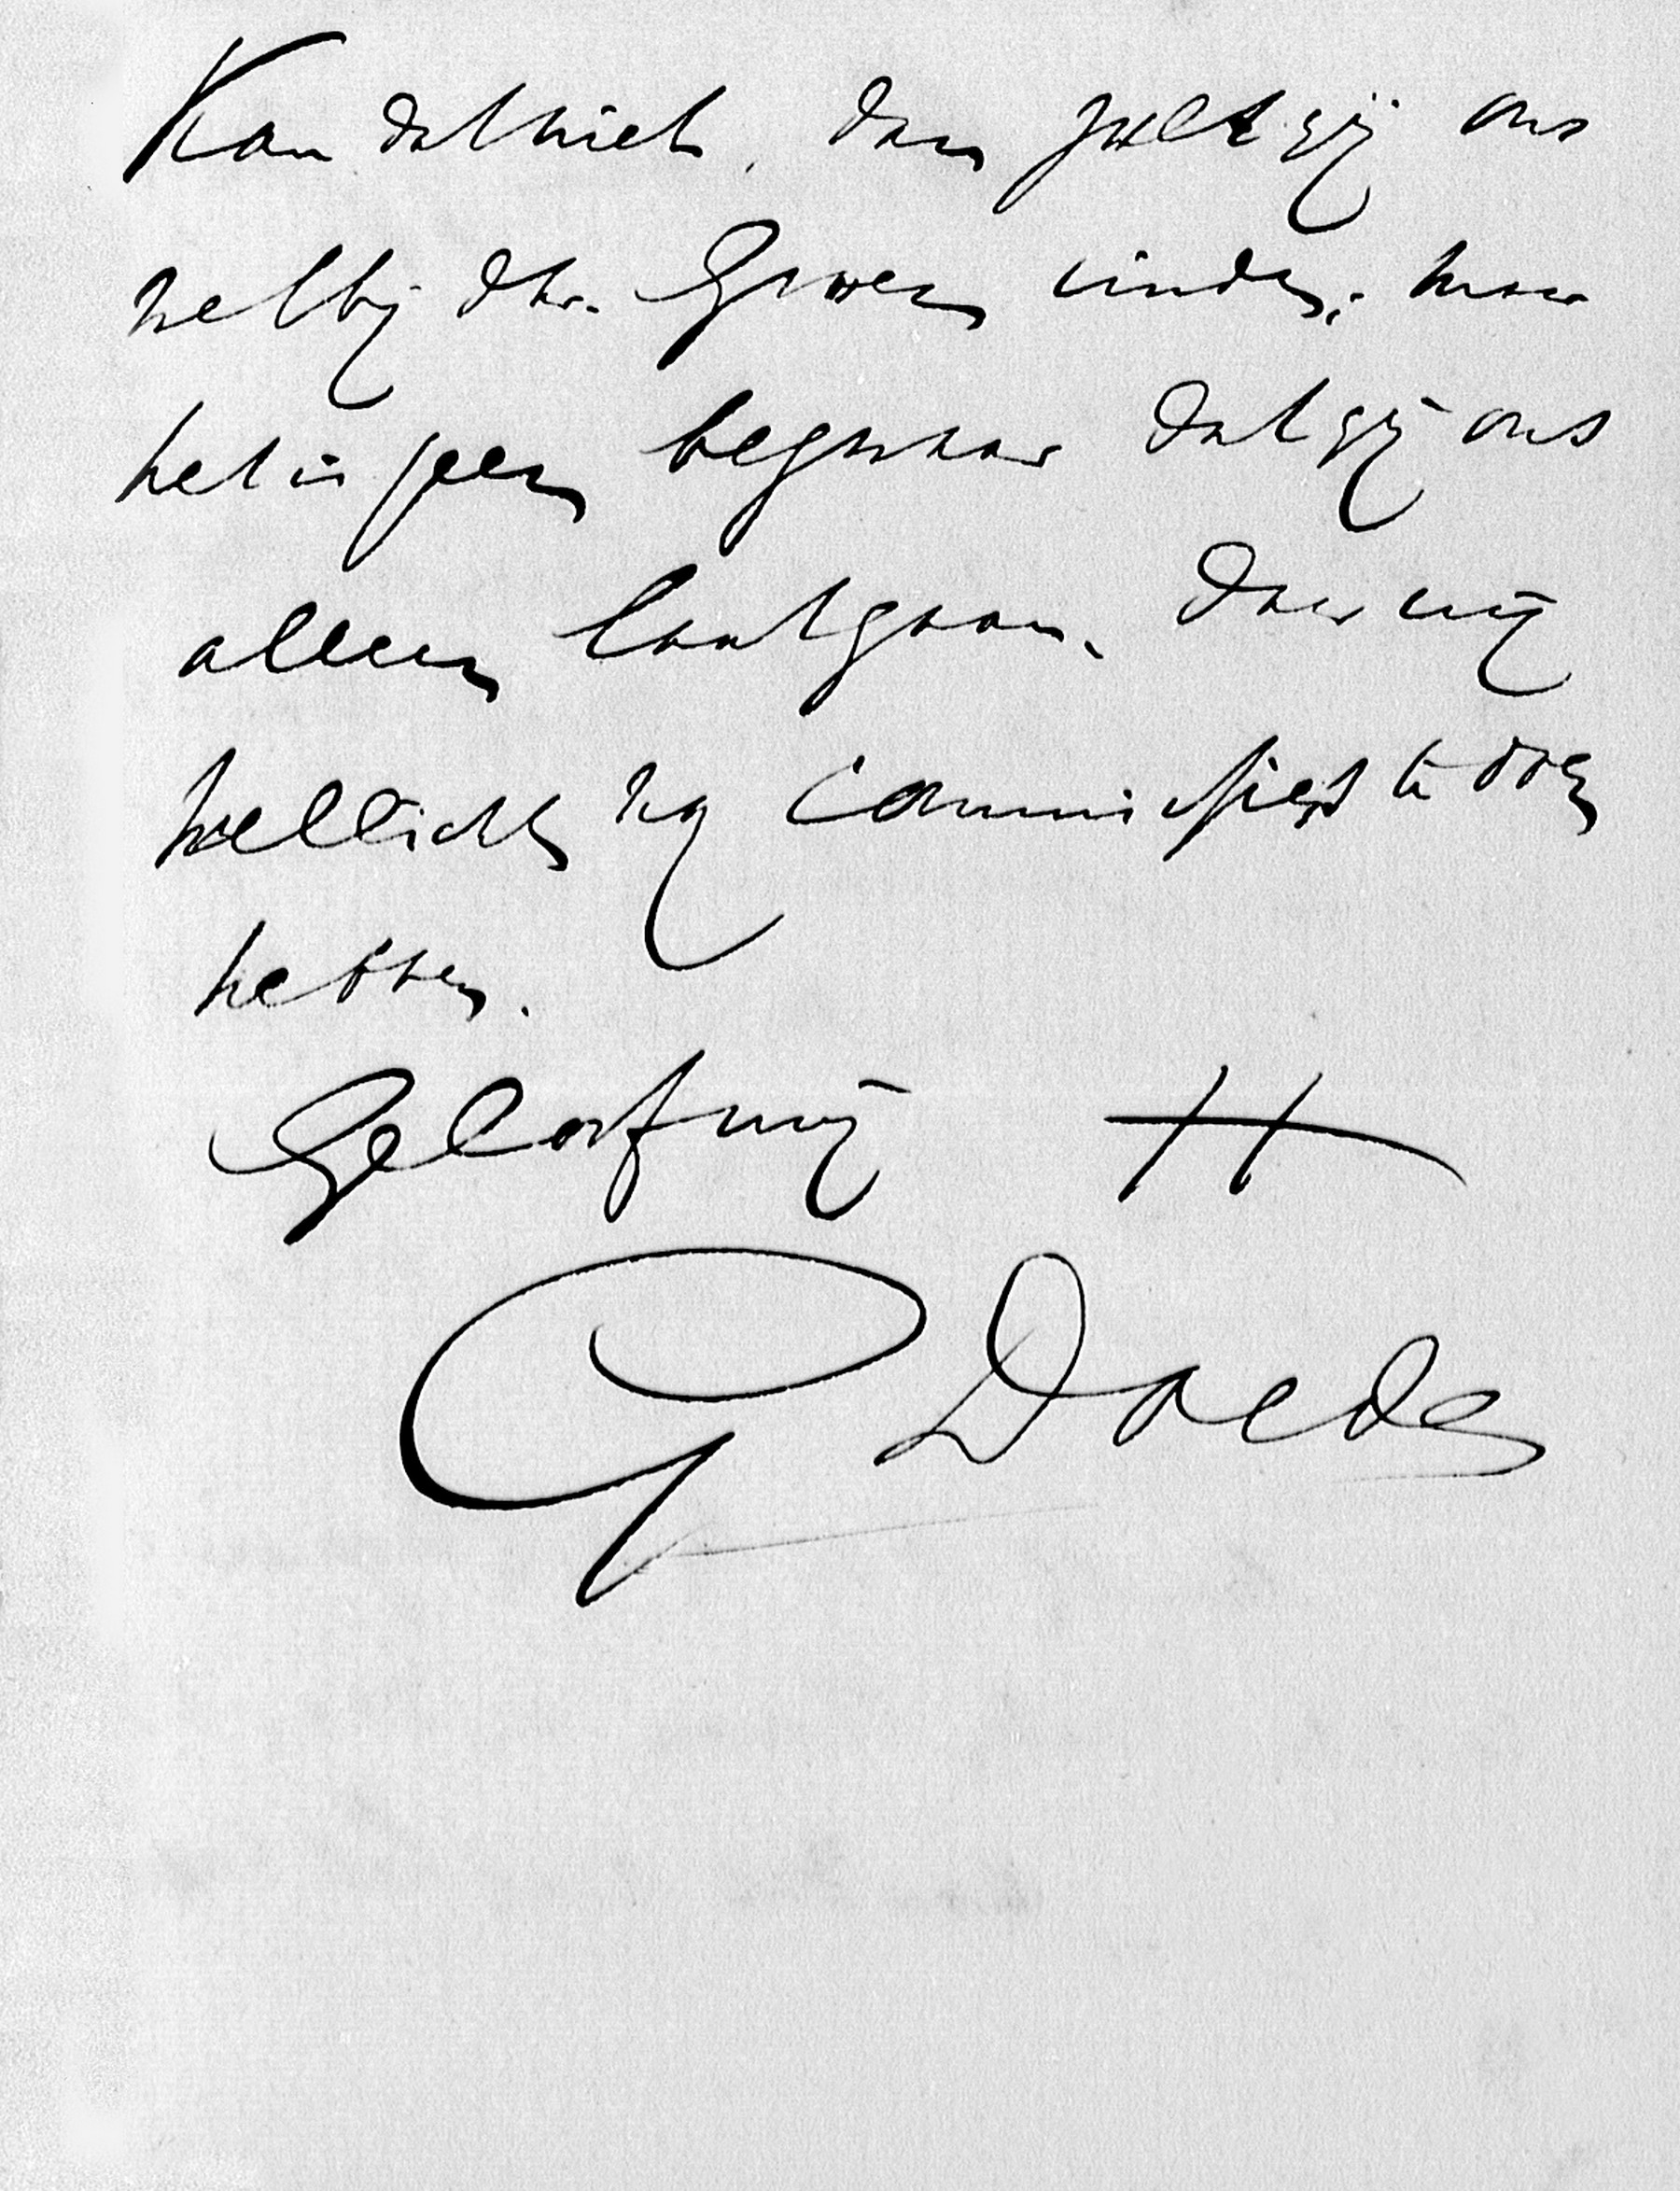 Kan dat niet, dan zult gij ons
wel bij dhr. Gruwen vinden; maar
het is geen bezwaar dat gij ons
alleen laat gaan, daar wij
wellicht nog commissies te doen
hebben.
Geloof mij tt
G Doedes